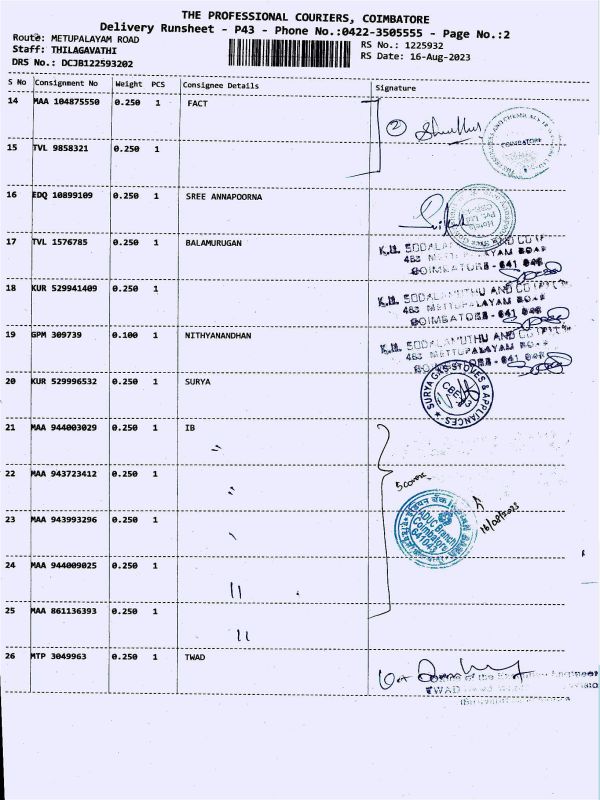 THE PROFESSIONAL COURIERS, COIMBATORE
Delivery Runsheet - P43 - Phone No.:0422-3505555 - Page No.:2
Route: METUPALAYAM ROAD
RS No.: 1225932
Staff: THILAGAVATHI
RS Date: 16-Aug-2023
DRS No.: DCJB122593202
S No Consignment No Weight PCS Consignee Details Signature
14 MAA 104875550 0.250 1 FACT
2
COIMBATORE
15 TVL 9858321 0.250 1
16 EDQ 10899109 0.250 1 SREE ANNAPOORNA
17 TVL 1576785 0.250 1 BALAMURUGAN
AND CO
483 METTUPALAYAM ROAD
COIMBATORE - 641 043
18 KUR 529941409 0.250 1
483 METTUPALAYAM ROAD
COIMBATORE - 641 043
19 GPM 309739 0.100 1 NITHYANANDHAN
K.M. SODALAMUTHU AND CO
483 METTUPALAYAM ROAD
641 043
20 KUR 529996532 0.250 1 SURYA
SURYA GAS STOVES & APPLIANCES
21 MAA 944003029 0.250 1 IB
22 MAA 943723412 0.250 1 "
16/08/2023
इंडियन बैंक INDIAN BANK
ADUC Branch
Coimbatore
641043
23 MAA 943993296 0.250 1
24 MAA 944009025 0.250 1 "
25 MAA 861136393 0.250 1 "
26 MTP 3049963 0.250 1 TWAD
of the Executive Engineer
TWAD